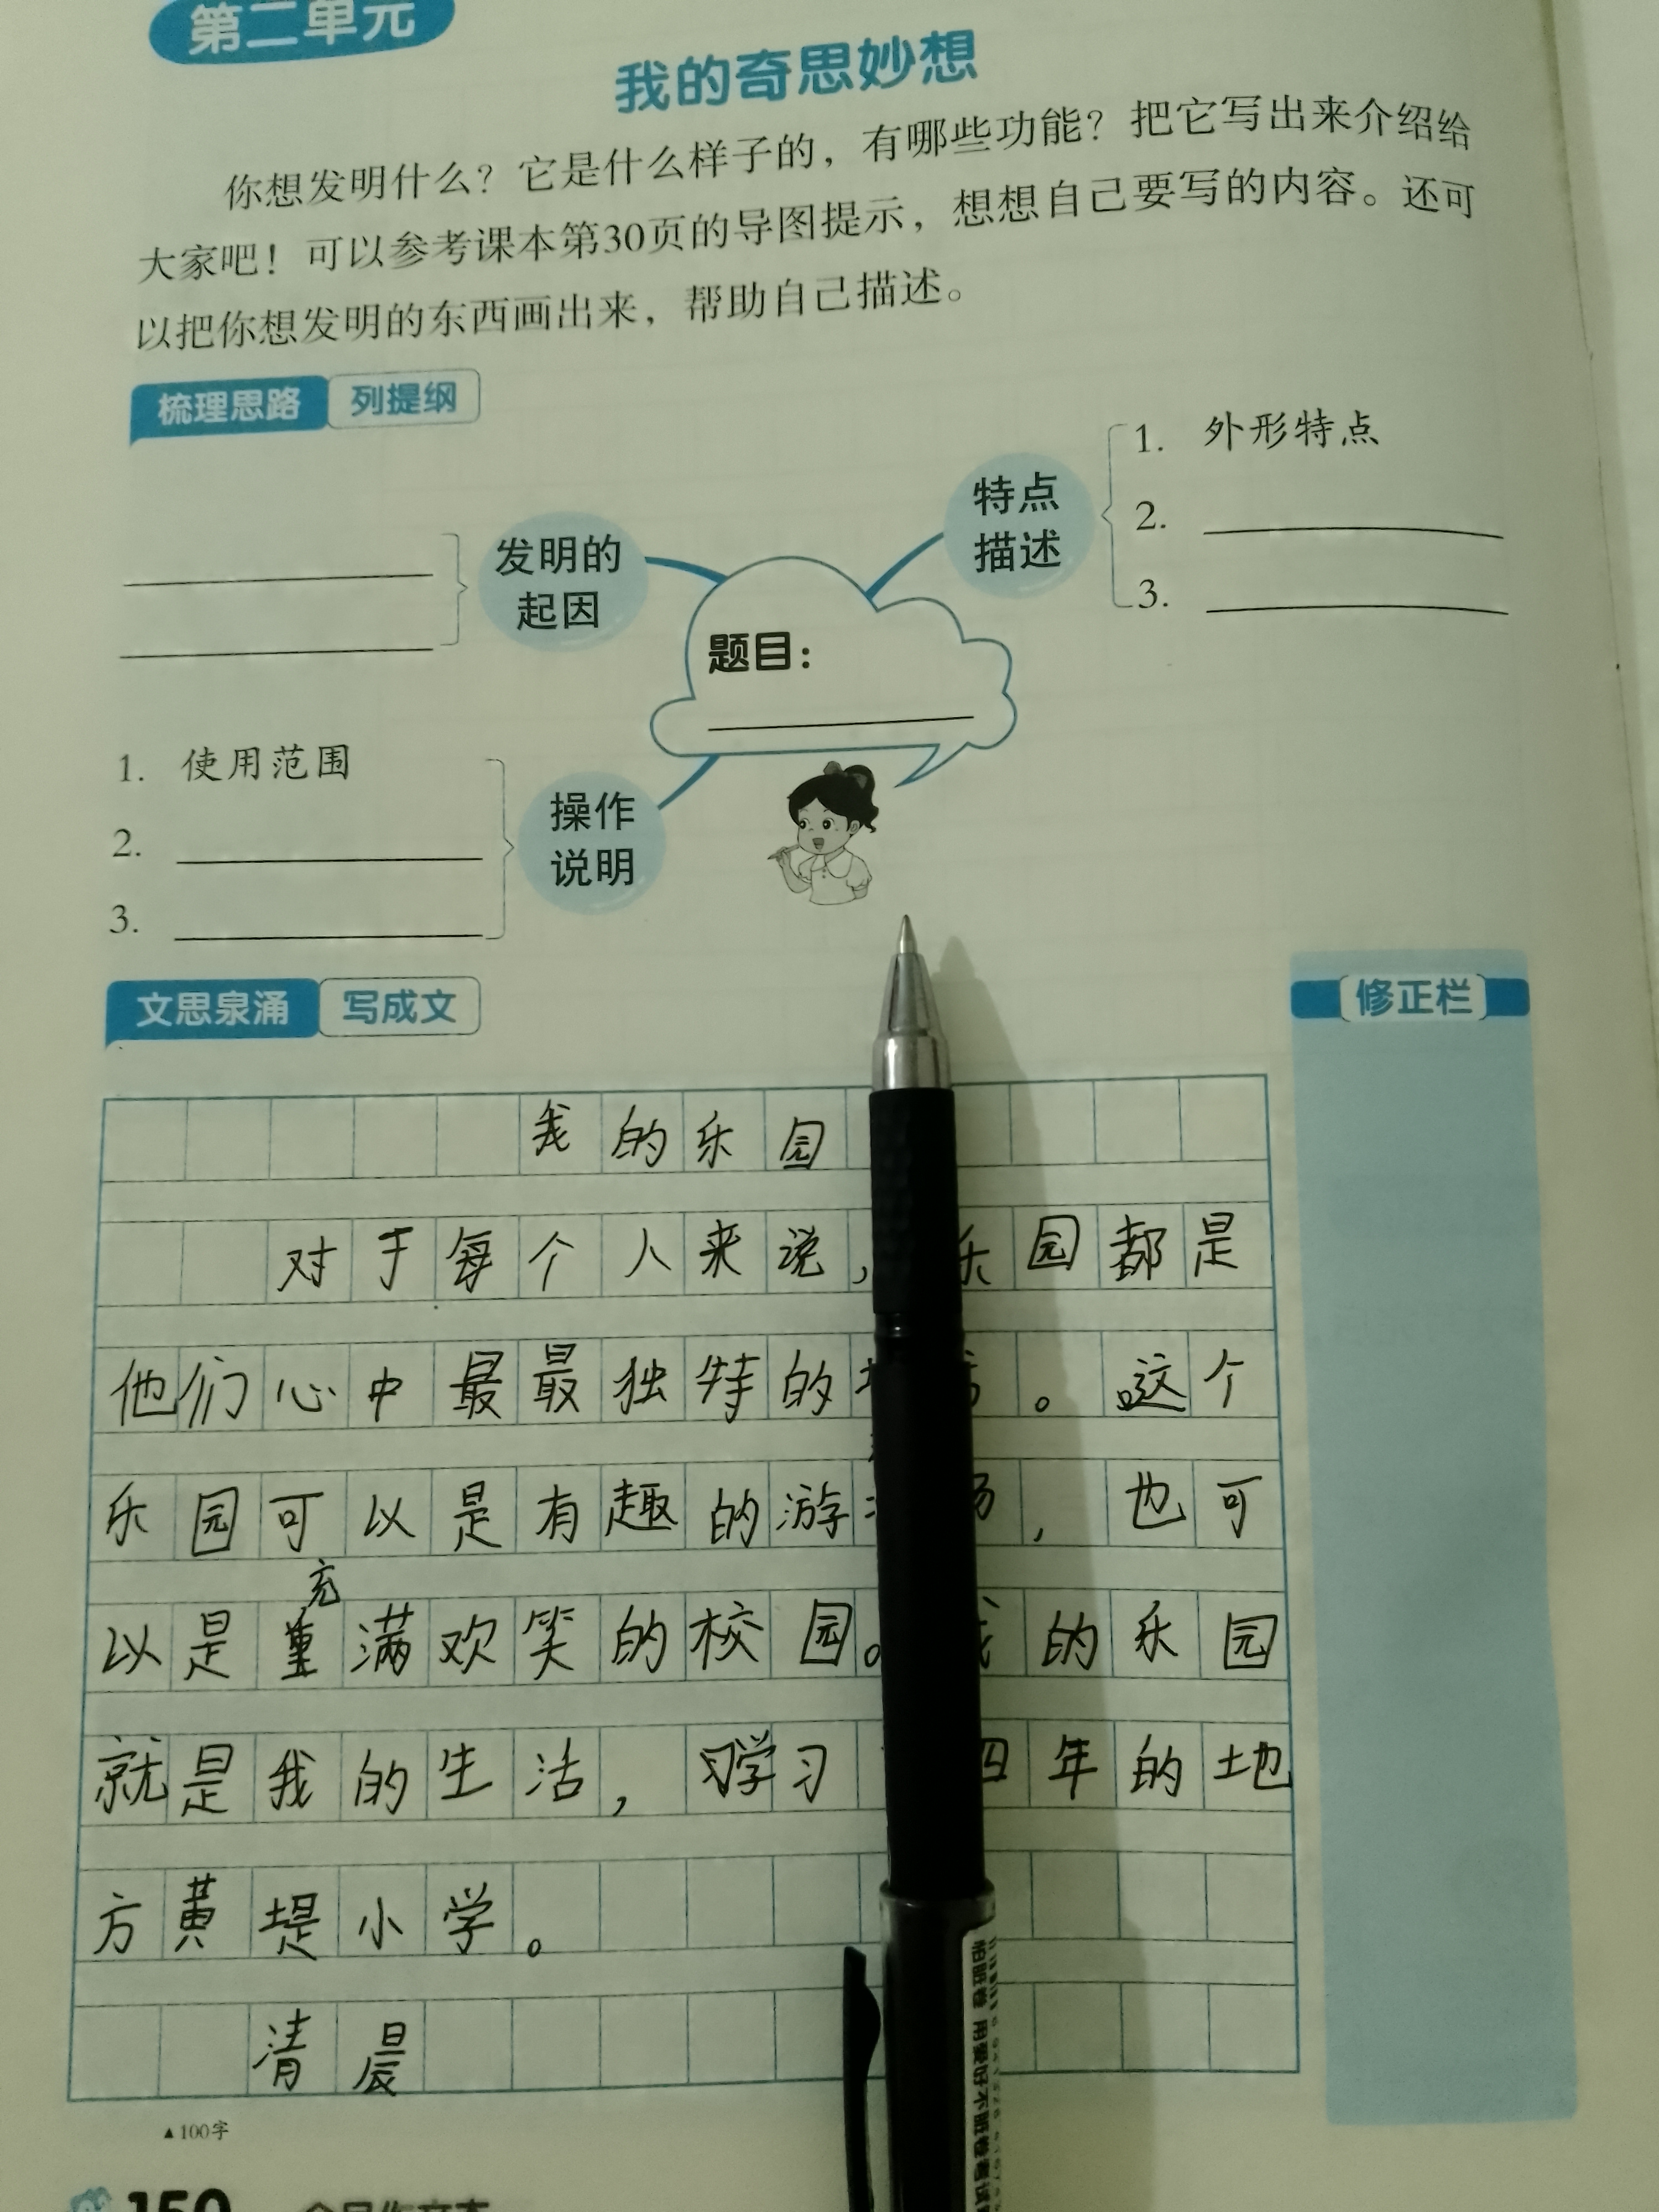 第二单元
我的奇思妙想
你想发明什么？它是什么样子的，有哪些功能？把它写出来介绍给
大家吧！可以参考课本第30页的导图提示，想想自己要写的内容。还可
以把你想发明的东西画出来，帮助自己描述。
梳理思路 列提纲
发明的
起因
特点
描述
1. 外形特点
2.
3.
题目：
1. 使用范围
2.
3.
操作
说明
文思泉涌 写成文
修正栏
我的乐园
对于每个人来说，乐园都是
他们心中最最独特的 。这个
乐园可以是有趣的游 场，也可
充
以是 满欢笑的校园。我的乐园
就是我的生活，习学习 四年的地
方黄堤小学。
清晨
▲100字
150